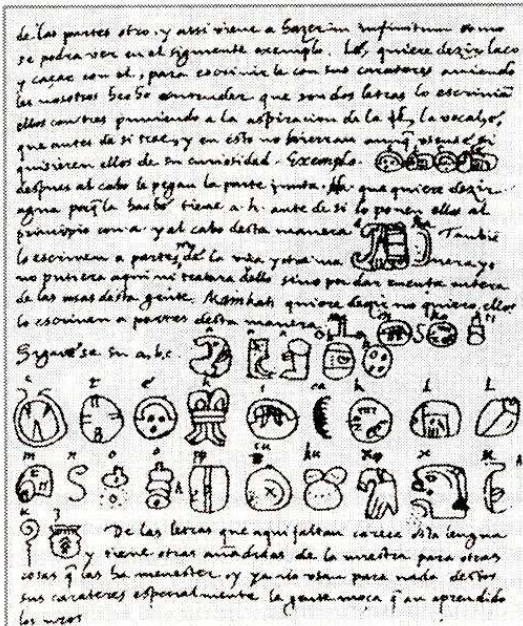 de las partes otro, y assi viene a hazer in infinitum como
se podra ver en el siguiente exemplo. Lé, quiere dezir laço
y caçar con el, para escrivirle con sus carateres aviendo
les nosotros hecho entender que son dos letras lo escrivian
ellos con tres puniendo a la aspiracion de la l la vocal e,
que antes de si trae, y en esto no hierran aunq usense, si
quisieren ellos de su curiosidad. Exemplo.
despues al cabo le pegan la parte junta. Ha que quiere dezir
agua porq la hache tiene a. h. ante de si lo ponen ellos al
principio con a. y al cabo desta manera
Tambie
lo escriven a partes, de la una y otra ma nera yo
no pusiera aqui ni tratara dello sino por dar cuenta entera
de las cosas desta gente. Mainkati quiere dezir no quiero, ellos
lo escriven a partes desta manera
Siguese su a, b, c.
De las letras que aqui faltan carece esta lengua
y tiene otras añadidas de la nuestra para otras
cosas q las ha menester, y ya no usan para nada destos
sus carateres especialmente la gente moça q an aprendido
los nros